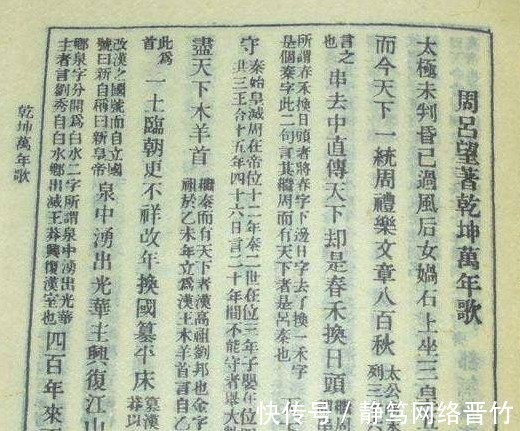 周呂望著乾坤萬年歌
太極未判昏已過風后女媧石上坐三皇
而今天下一統周禮樂文章八百秋
太公
列三
言之
也
串去中直傳天下却是春禾換日頭
所謂春禾換日頭者將春字下邊日字去了換一禾字
是個秦字此二句言其繼周而有天下者是呂秦也
守
秦始皇滅周在帝位十二年秦二世在位三年子嬰在位
共三王合十五年四十六日言二十年間不能守者舉大
盡天下木羊首
繼秦而有天下者漢高祖劉邦也金字
祖於乙未年立爲漢王木羊首言自乙
此爲
首
一土臨朝更不祥改年換國篡平床
篡漢
莽以
改漢之國號而自立國
號曰新自稱曰新皇帝
泉中湧出光華主興復江山
鄉泉字分開爲白水二字所謂泉中湧出光華
主者言劉秀自白水鄉出滅王莽興復漢室也
四百年來
乾坤萬年歌
快传号/静笃网络晋竹